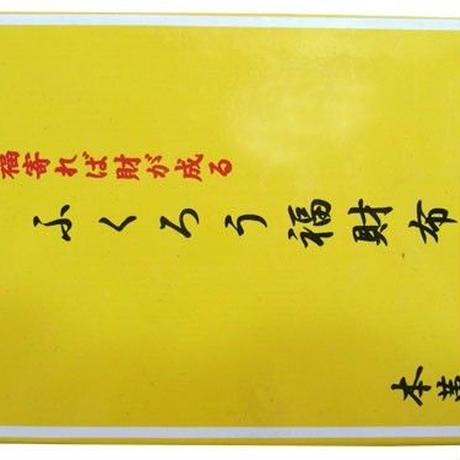 福寄れば財が成る
ふくろう福財布
本革